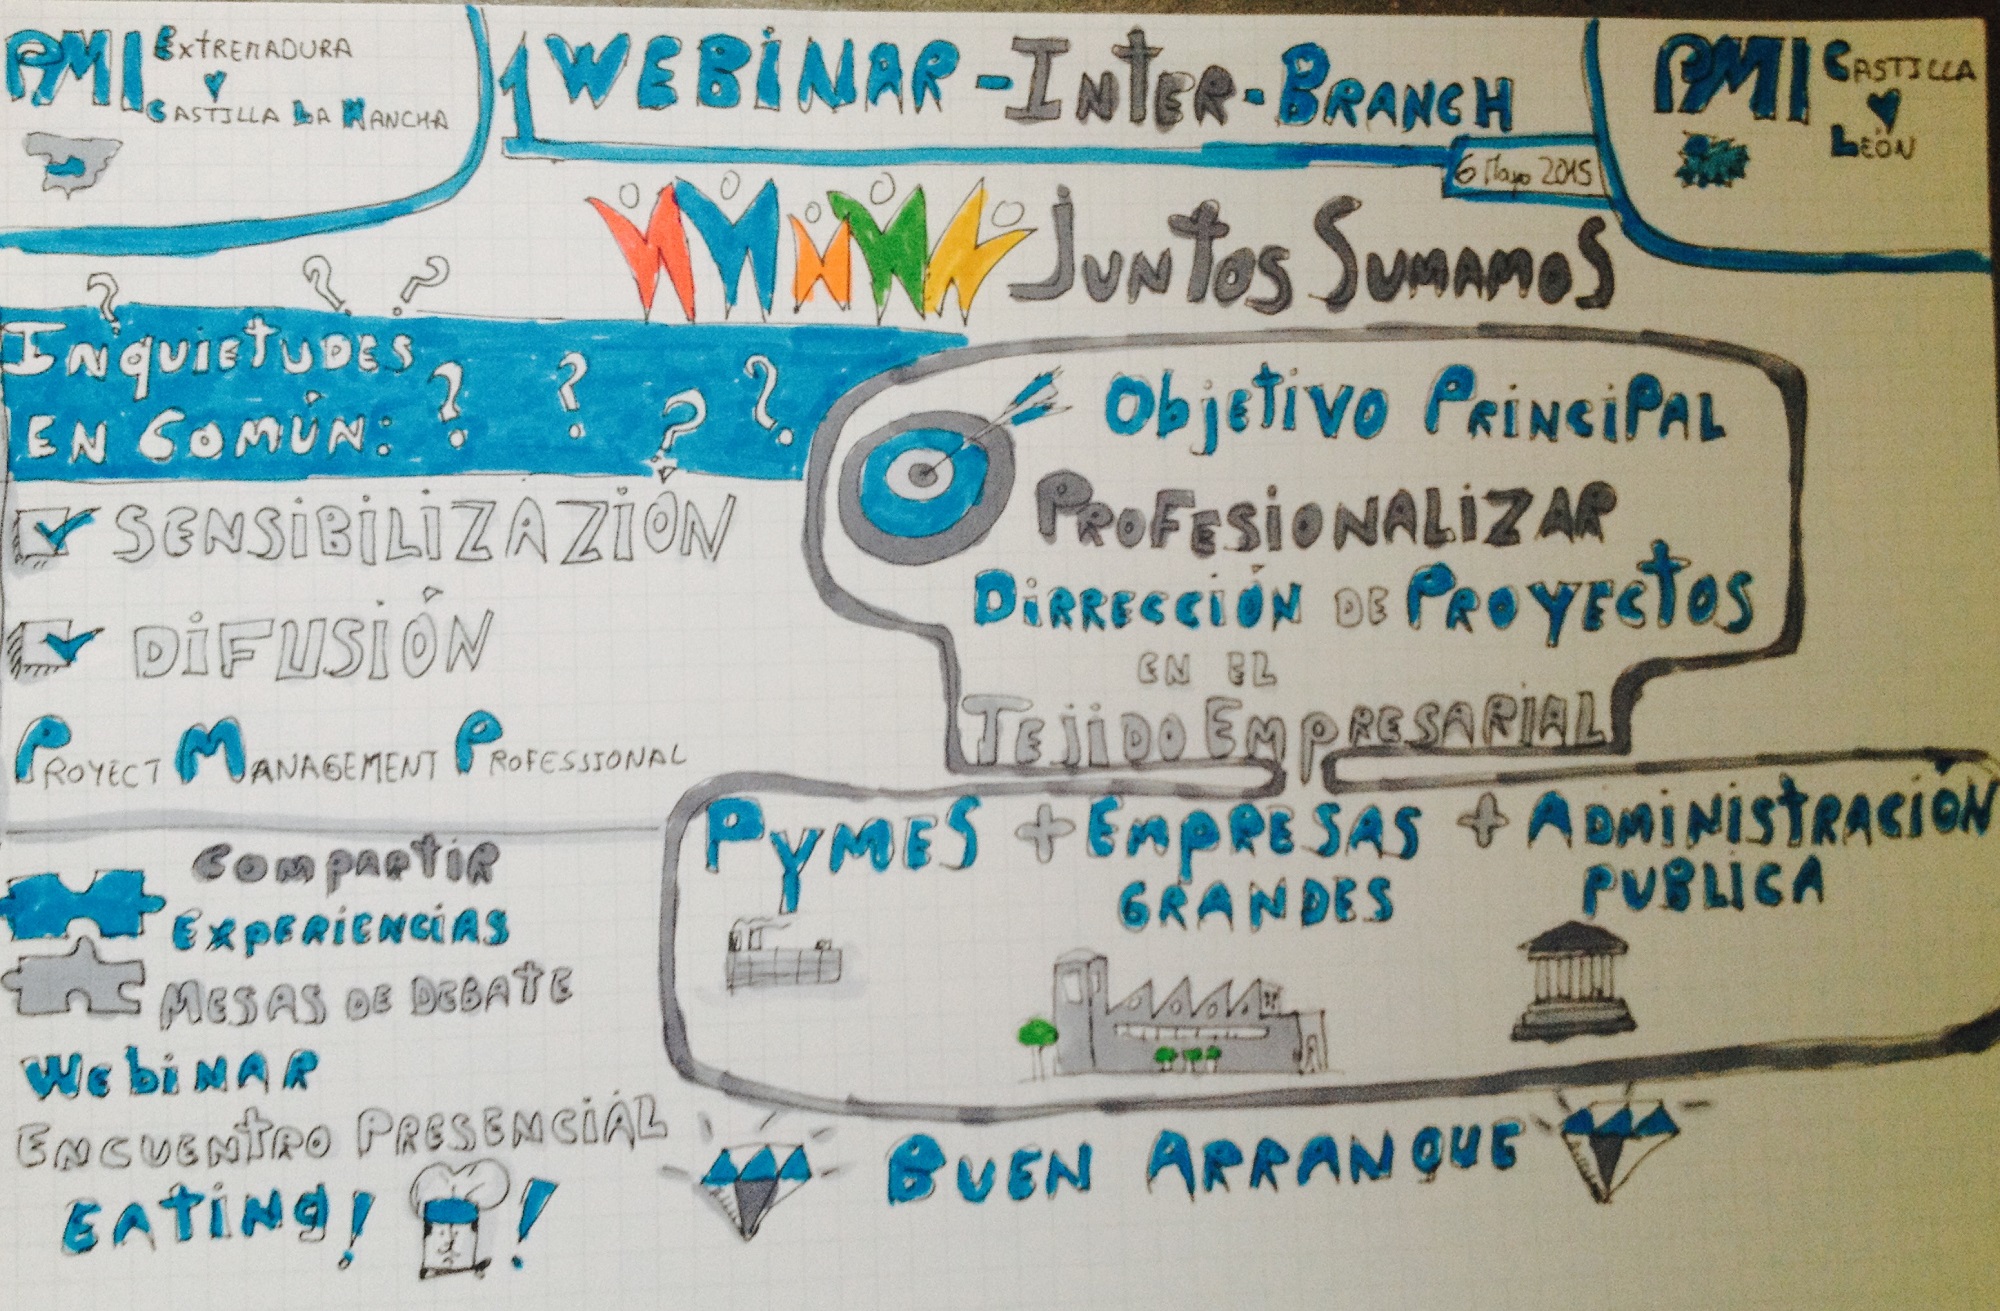 PMI EXTREMADURA
Y
CASTILLA LA MANCHA
1 WEBINAR - INTER - BRANCH
6 Mayo 2015
PMI CASTILLA
Y
LEÓN
JUNTOS SUMAMOS
? ? ?
INQUIETUDES
EN COMÚN: ? ? ? ?
SENSIBILIZAZIÓN
DIFUSIÓN
PROYECT MANAGEMENT PROFESSIONAL
COMPARTIR
EXPERIENCIAS
MESAS DE DEBATE
WEBINAR
ENCUENTRO PRESENCIAL
EATING! !
OBJETIVO PRINCIPAL
PROFESIONALIZAR
DIRRECCIÓN DE PROYECTOS
EN EL
TEJIDO EMPRESARIAL
PYMES + EMPRESAS + ADMINISTRACIÓN
GRANDES PUBLICA
BUEN ARRANQUE